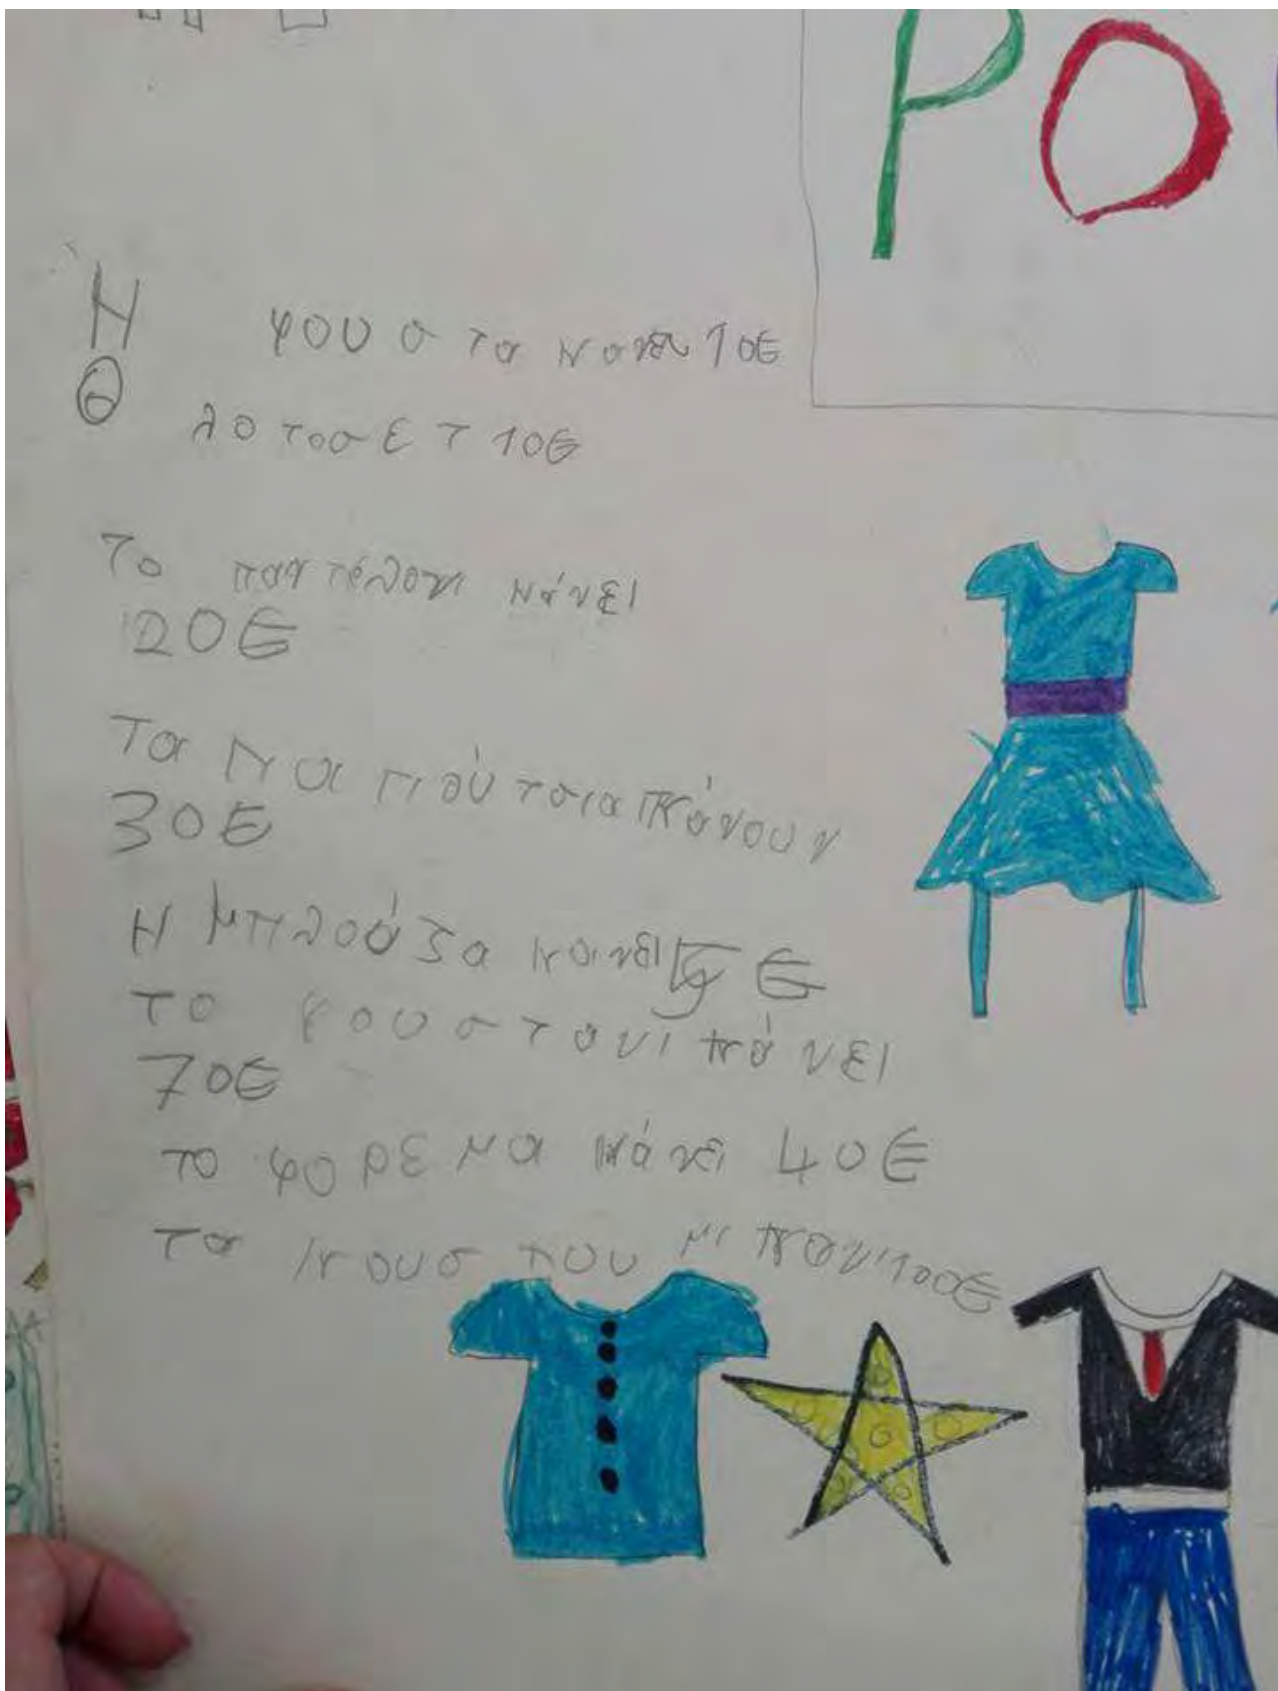 ΡΟ
Η φουστα κανει 10€
Θ λοτοσετ 10€
Το παντελονι κάνει
20€
Τα καπιούτσια κάνουν
30€
Η μπλούζα κανει €
το φουστανι κάνει
70€
το φορεμα κάνει 40€
τα κουστουμι κανι 100€